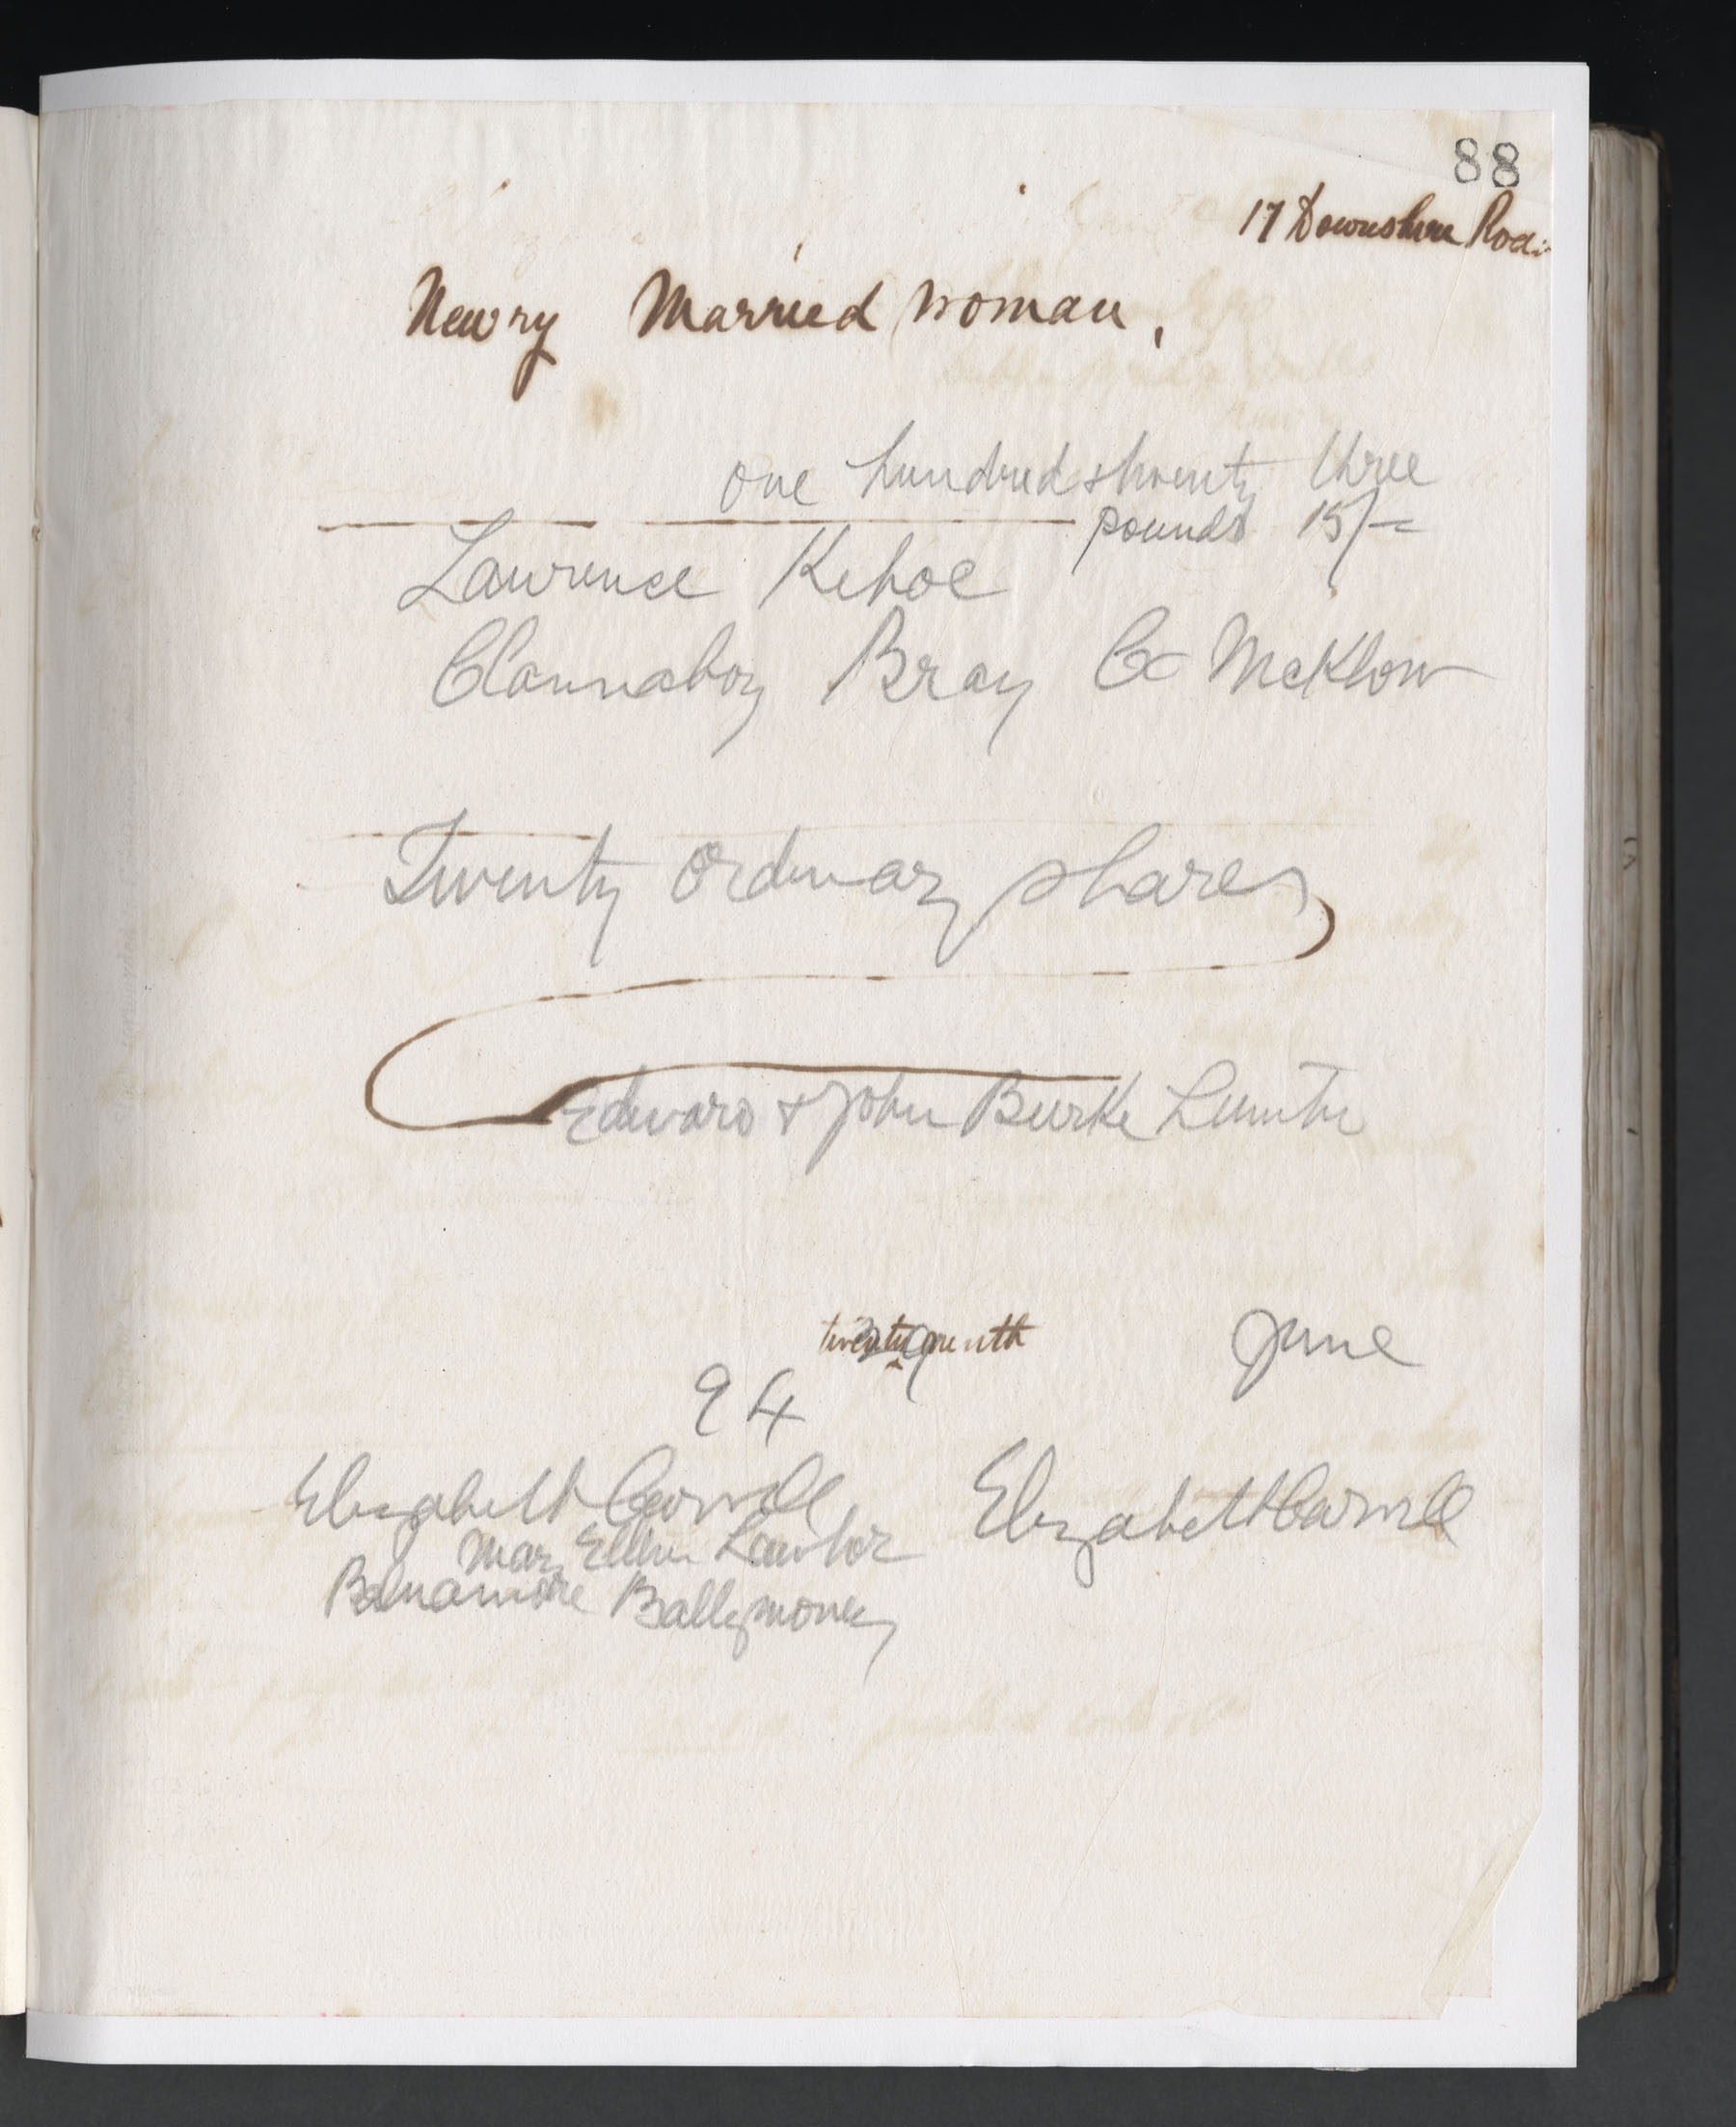 88
17 Downshire Road
Newry Married woman,
one hundred & twenty three
pounds 15/-
Lawrence Kehoe
Clannaboy Bray Co Wicklow
Twenty Ordinary shares
Edward & John Burke Limited
twenty ninth June
94
Elizabeth Carroll Elizabeth Carroll
Mary Ellen Lawlor
Balnamore Ballymoney